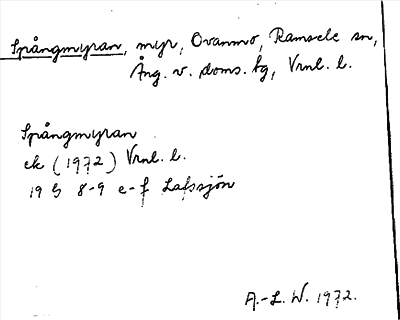 Spångmyran, myr, Ovanmo, Ramsele sn,
Ång. v. doms. bg, Vrnl. l.
Spångmyran
ek (1972) Vrnl. l.
19 G 8-9 e-f Lafssjön
A.-L. W. 1972.